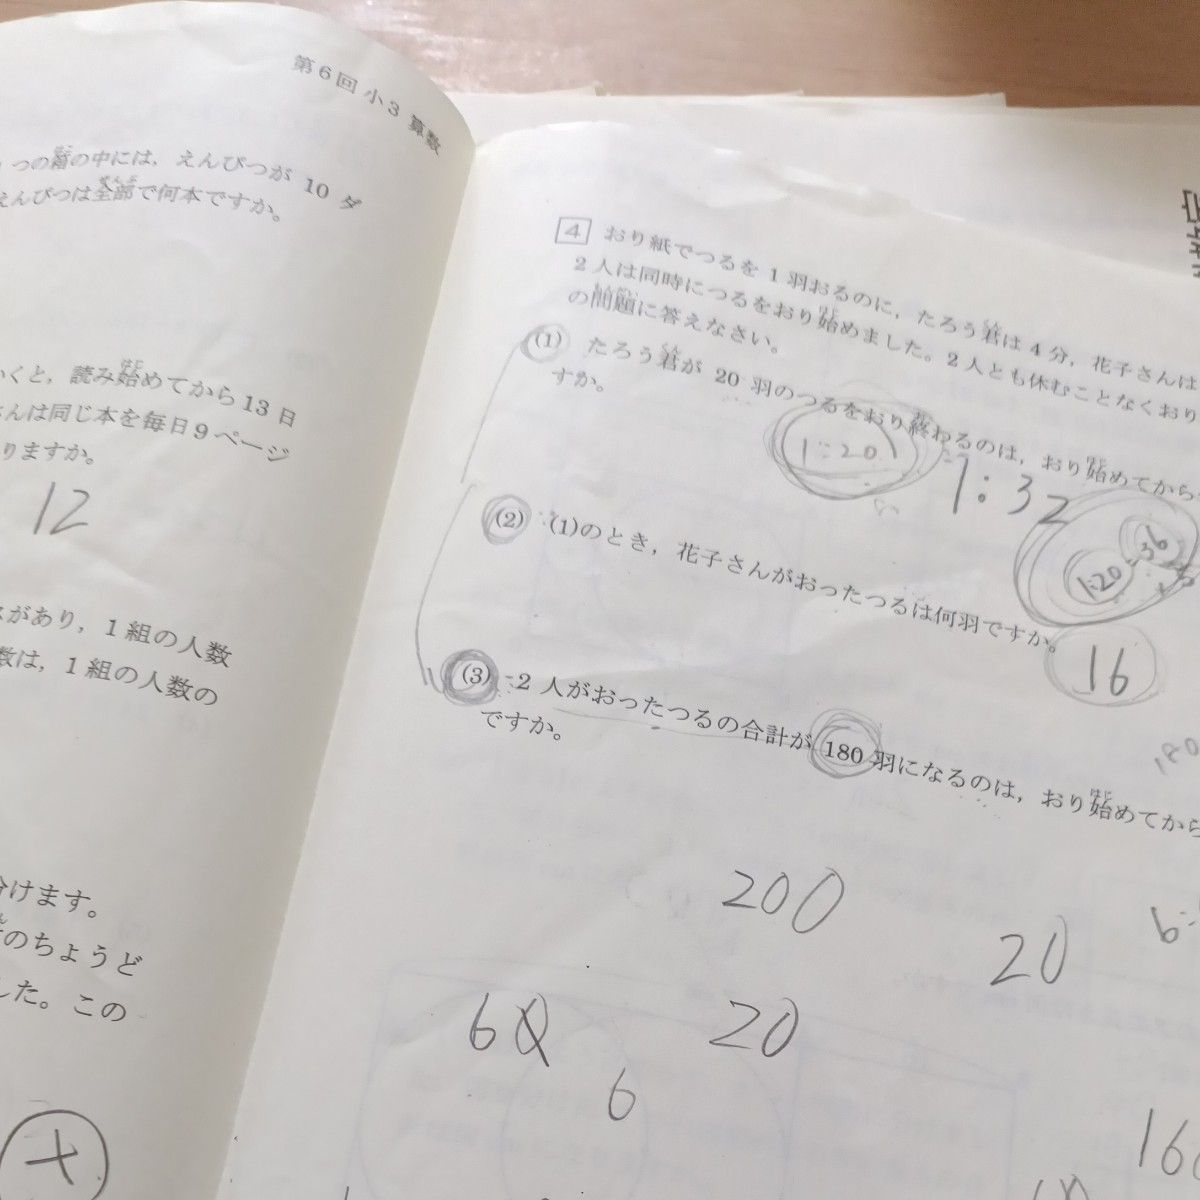 第6回 小3 算数
つの箱の中には，えんぴつが 10 ダ
えんぴつは全部で何本ですか。
くと，読み始めてから13日
さんは同じ本を毎日9ページ
りますか。
12
があり，1組の人数
数は，1組の人数の
分けます。
のちょうど
した。この
4 おり紙でつるを 1 羽おるのに，たろう君は 4 分，花子さんは
2 人は同時につるをおり始めました。2 人とも休むことなくおり
の問題に答えなさい。
(1) たろう君が 20 羽のつるをおり終わるのは，おり始めてから
すか。
1:20
1:32
1:20
36
(2) (1)のとき，花子さんがおったつるは何羽ですか。
16
(3) 2 人がおったつるの合計が 180 羽になるのは，おり始めてから
ですか。
180
200
20
6:
60
20
6
16